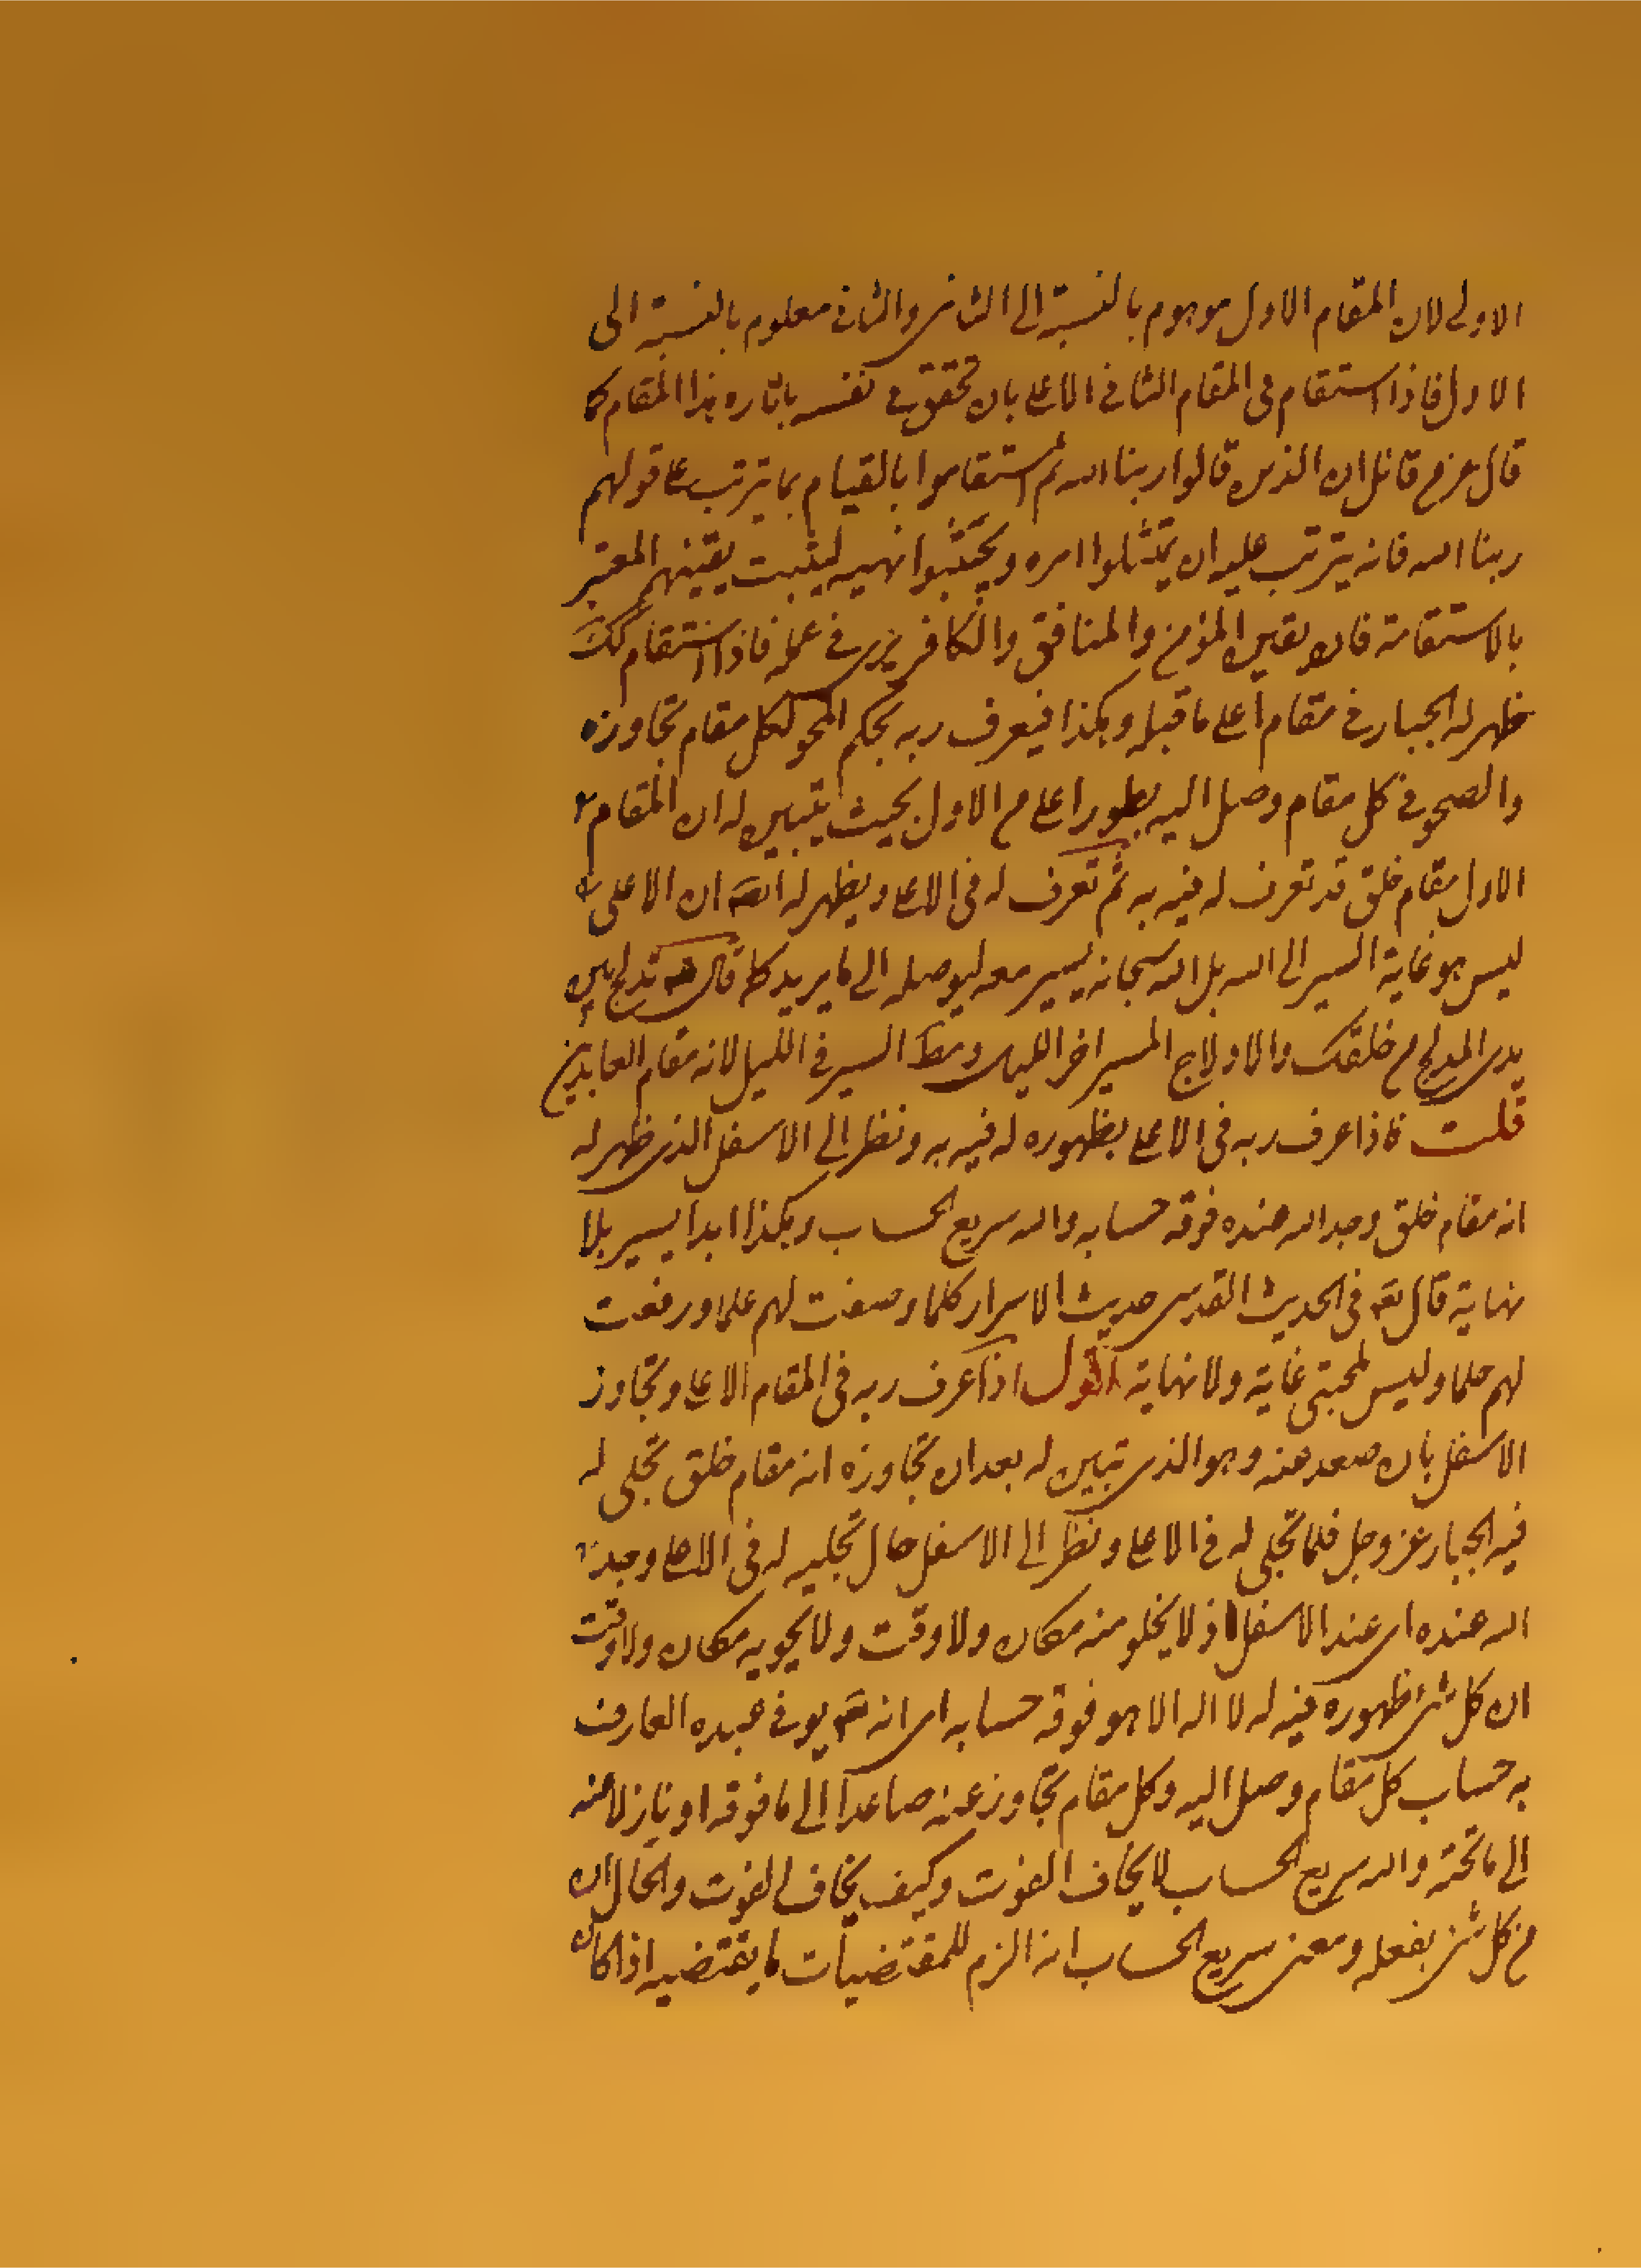 الاولى لان المقام الاول موهوم بالنسبة الى الثانى والثانى معلوم بالنسبة الى
الاول فاذا استقام فى المقام الثانى الاعلى بان تحقق فى نفسه باثاره هذا المقام كما
قال عز من قائل ان الذين قالوا ربنا الله ثم استقاموا بالقيام بما يترتب على قولهم
ربنا الله فانه يترتب عليه ان يمتثلوا امره ويجتنبوا نهيه ليثبت يقينهم المعتبر
بالاستقامة فان يقين المؤمن والمنافق والكافر يرى فى عمله فاذا استقام كك
ظهر له الجبار فى مقام اعلى ما قبله وهكذا فيعرف ربه بحكم المحو لكل مقام تجاوزه
والصحو فى كل مقام وصل اليه بطور اعلى من الاول بحيث يتبين له ان المقام
الاول مقام خلق قد تعرف له فيه به ثم تعرف له فى الاعلى ويظهر له ان الاعلى
ليس هو غاية السير الى الله بل الله سبحانه يسير معه ليوصله الى ما يريد كما قال تدلج بين
يدى المدلج من خلقك والادلاج المسير اخر الليل السير فى الليل لانه مقام العابدين
قلت فاذا عرف ربه فى الاعلى بظهوره له فيه به ونظر الى الاسفل الذى ظهر له
انه مقام خلق وجد الله عنده فوفه حسابه والله سريع الحساب وهكذا ابدا يسير بلا
نهاية قال تعه فى الحديث القدسى حديث الاسرار كلما وضعت لهم علما ورفعت
لهم حلما وليس لمحبتى غاية ولا نهاية اقول اذا عرف ربه فى المقام الاعلى وتجاوز
الاسفل بان صعد عنه وهو الذى تبين له بعد ان تجاوزه انه مقام خلق تجلى له
فيه الجبار عز وجل فلما تجلى له فى الاعلى ونظر الى الاسفل حال تجليه له فى الاعلى وجد
الله عنده اى عند الاسفل اذ لا يخلو منه مكان ولا وقت ولا يحويه مكان ولا وقت
ان كل شئ ظهوره فيه له لا اله الا هو فوفه حسابه اى انه تعه يوفى عبده العارف
به حساب كل مقام وصل اليه وكل مقام تجاوز عنه صاعدا الى ما فوقه او نازلا عنه
الى ما تحته والله سريع الحساب لا يخاف الفوت وكيف يخاف الفوت والحال ان
من كل شئ بفعله ومعنى سريع الحساب انه الزم للمقتضيات ما يقتضيه اذا كان